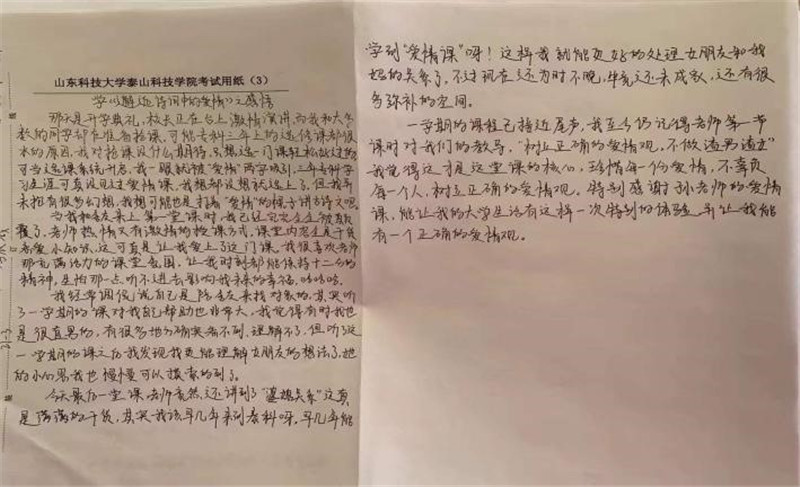 山东科技大学泰山科技学院考试用纸（3）
学《邂逅诗词中的爱情》之感悟
那天是开学典礼，校长正在台上激情演讲，而我和大多
数的同学都在准备抢课，可能专科三年上的选修课都很
水的原因，我对抢课没什么期待，只想选一门课轻松
可当选课系统开启，我一眼就被“爱情”两字吸引，三年专科学
习生涯可真没见过爱情课，我想都没想就选上了，但我并
未抱有很多幻想，我想可能也是打着“爱情”的幌子讲古诗文吧。
当我和舍友来上第一堂课时，我已经完完全全被震
撼了，老师热情又有激情的授课方式，课堂内容全是干货
恋爱小知识，这可真是让我爱上了这门课，我很喜欢老师
那充满活力的课堂氛围，让我时刻都能保持十二分的
精神，生怕那一点听不进去影响我未来的幸福，哈哈哈。
我经常调侃，说自己是陪舍友来找对象的，其实听
了一学期的课对我的帮助也非常大，我觉得有时我也
是很直男的，有很多地方确实看不到、理解不了，但听了这
一学期的课之后我发现我更能理解女朋友的想法了，她
的小心思我也慢慢可以摸索的到了。
今天最后一堂课老师竟然还讲到了“婆媳关系”这真
是满满的干货，其实我该早几年来到本科呀，早几年能
学到“爱情课”呀！这样我就能更好的处理女朋友和我
妈的关系了，不过现在还为时不晚，毕竟还未成家，还有很
多弥补的空间。
一学期的课程已接近尾声，我至今仍记得老师第一节
课时对我们的教导，“树立正确的爱情观，不做渣男渣女”
我觉得这才是这堂课的核心，珍惜每一份爱情，不辜负
每一个人，树立正确的爱情观。特别感谢孙老师的爱情
课，能让我的大学生活有这样一次特别的体验，并让我能
有一个正确的爱情观。